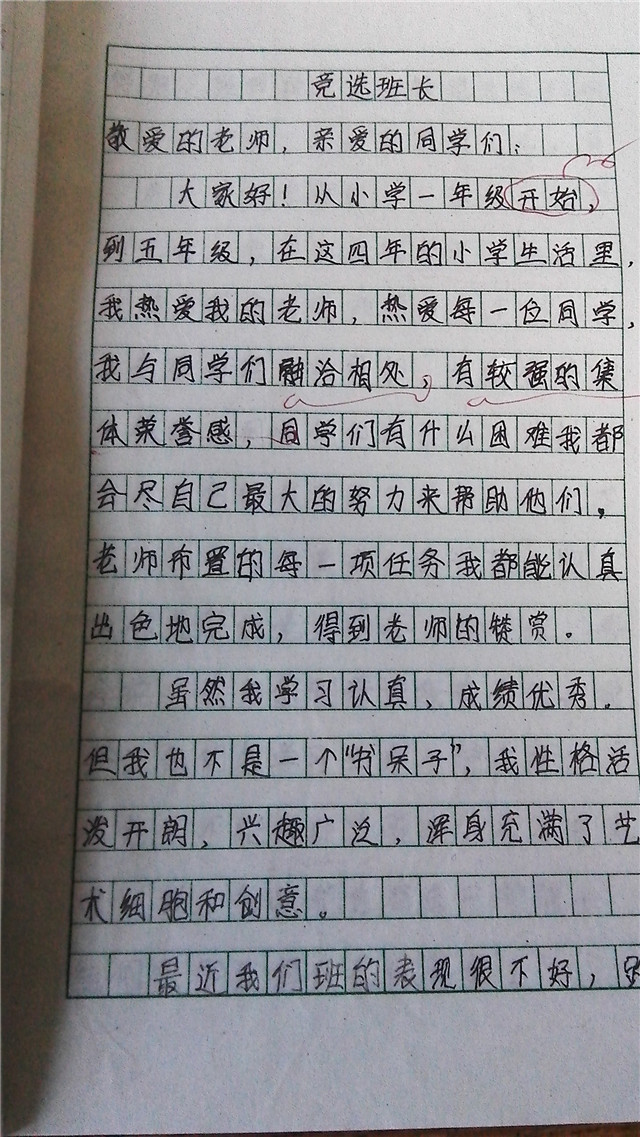 竞选班长
敬爱的老师，亲爱的同学们：
大家好！从小学一年级开始，
到五年级，在这四年的小学生活里，
我热爱我的老师，热爱每一位同学，
我与同学们融洽相处，有较强的集
体荣誉感，同学们有什么困难我都
会尽自己最大的努力来帮助他们，
老师布置的每一项任务我都能认真
出色地完成，得到老师的赞赏。
虽然我学习认真、成绩优秀。
但我也不是一个“书呆子”，我性格活
泼开朗，兴趣广泛，浑身充满了艺
术细胞和创意。
最近我们班的表现很不好，